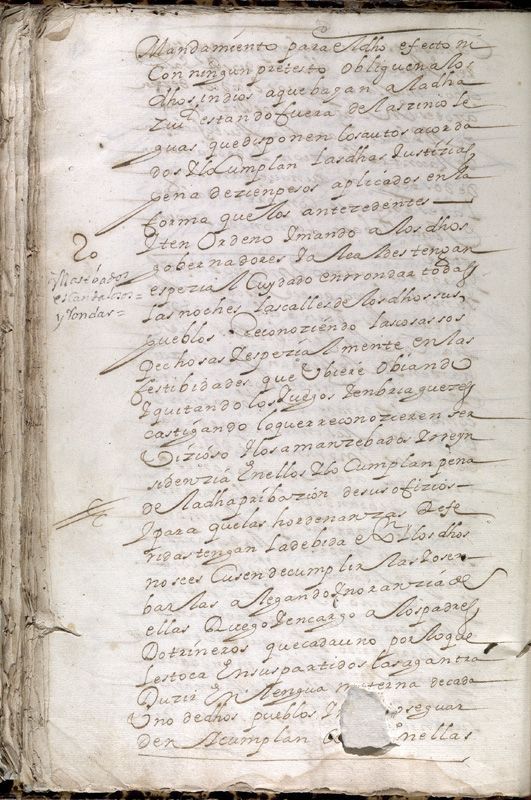 Mandamiento para el dho efecto ni
Con ningun pretesto obliguen a los
dhos indios a que bayan a la dha
estando fuera de las zinco le
guas que disponen los autos acorda
dos y lo cumplan las dhas Justizias
pena de zien pesos aplicados en la
forma que los antezedentes
20
Yten Ordeno y mando a los dhos
gobernadores y alcaldes tengan
espezial Cuydado en rrondar todas
las noches las calles de los dhos sus
pueblos Reconoziendo las cosas sos
pechosas y espezialmente en las
festibidades que Ubiere obiando
y quitando los Juegos y enbriaguezes
castigando lo que rreconozieren ser
Vizioso y los amanzebados y rreyn
sidenzia En ellos y lo Cumplan pena
de la dha pribazion de sus ofizios
y para que las hordenanzas Refe
ridas tengan la debida e y los dhos
no se escusen de cumplirlas y oser
barlas alegando Ynoranzia de
ellas Ruego y encargo a los padres
Dotrineros que cada uno por lo que
les toca En sus partidos las agan tra
duzir En lengua materna de cada
Uno de dhos pueblos seguar
den y cumplan en ellas
escandalos
y Rondas